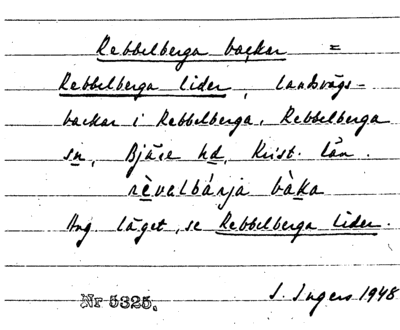 Rebbelberga backar =
Rebbelberga lider, landsvägs-
backar i Rebbelberga, Rebbelberga
sn, Bjäre hd, Krist. län.
rèvalbárja bàka
Ang läget, se Rebbelberga lider.
Nr 5325. I. Ingers 1948